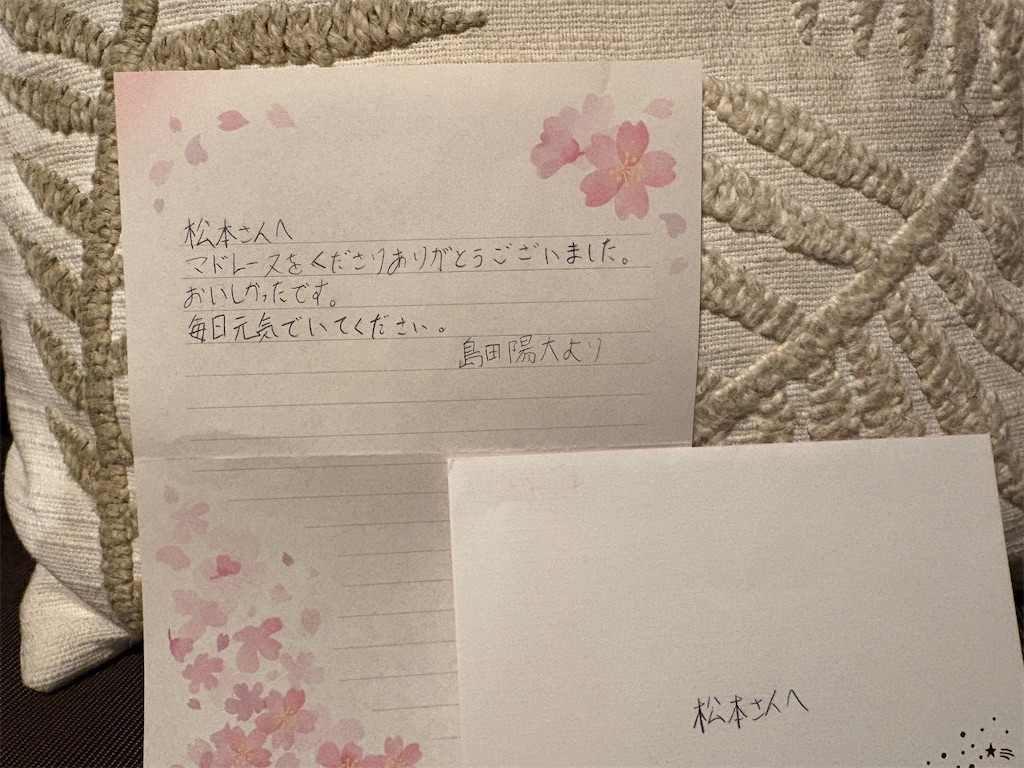 松本さんへ
マドレーヌをくださりありがとうございました。
おいしかったです。
毎日元気でいてください。
島田陽大より
松本さんへ